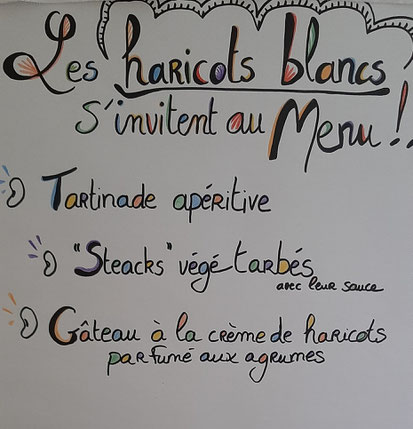 Les haricots blancs
s'invitent au Menu !
Tartinade apéritive
"Steacks" végétarbés
avec leur sauce
Gâteau à la crème de haricots
parfumé aux agrumes